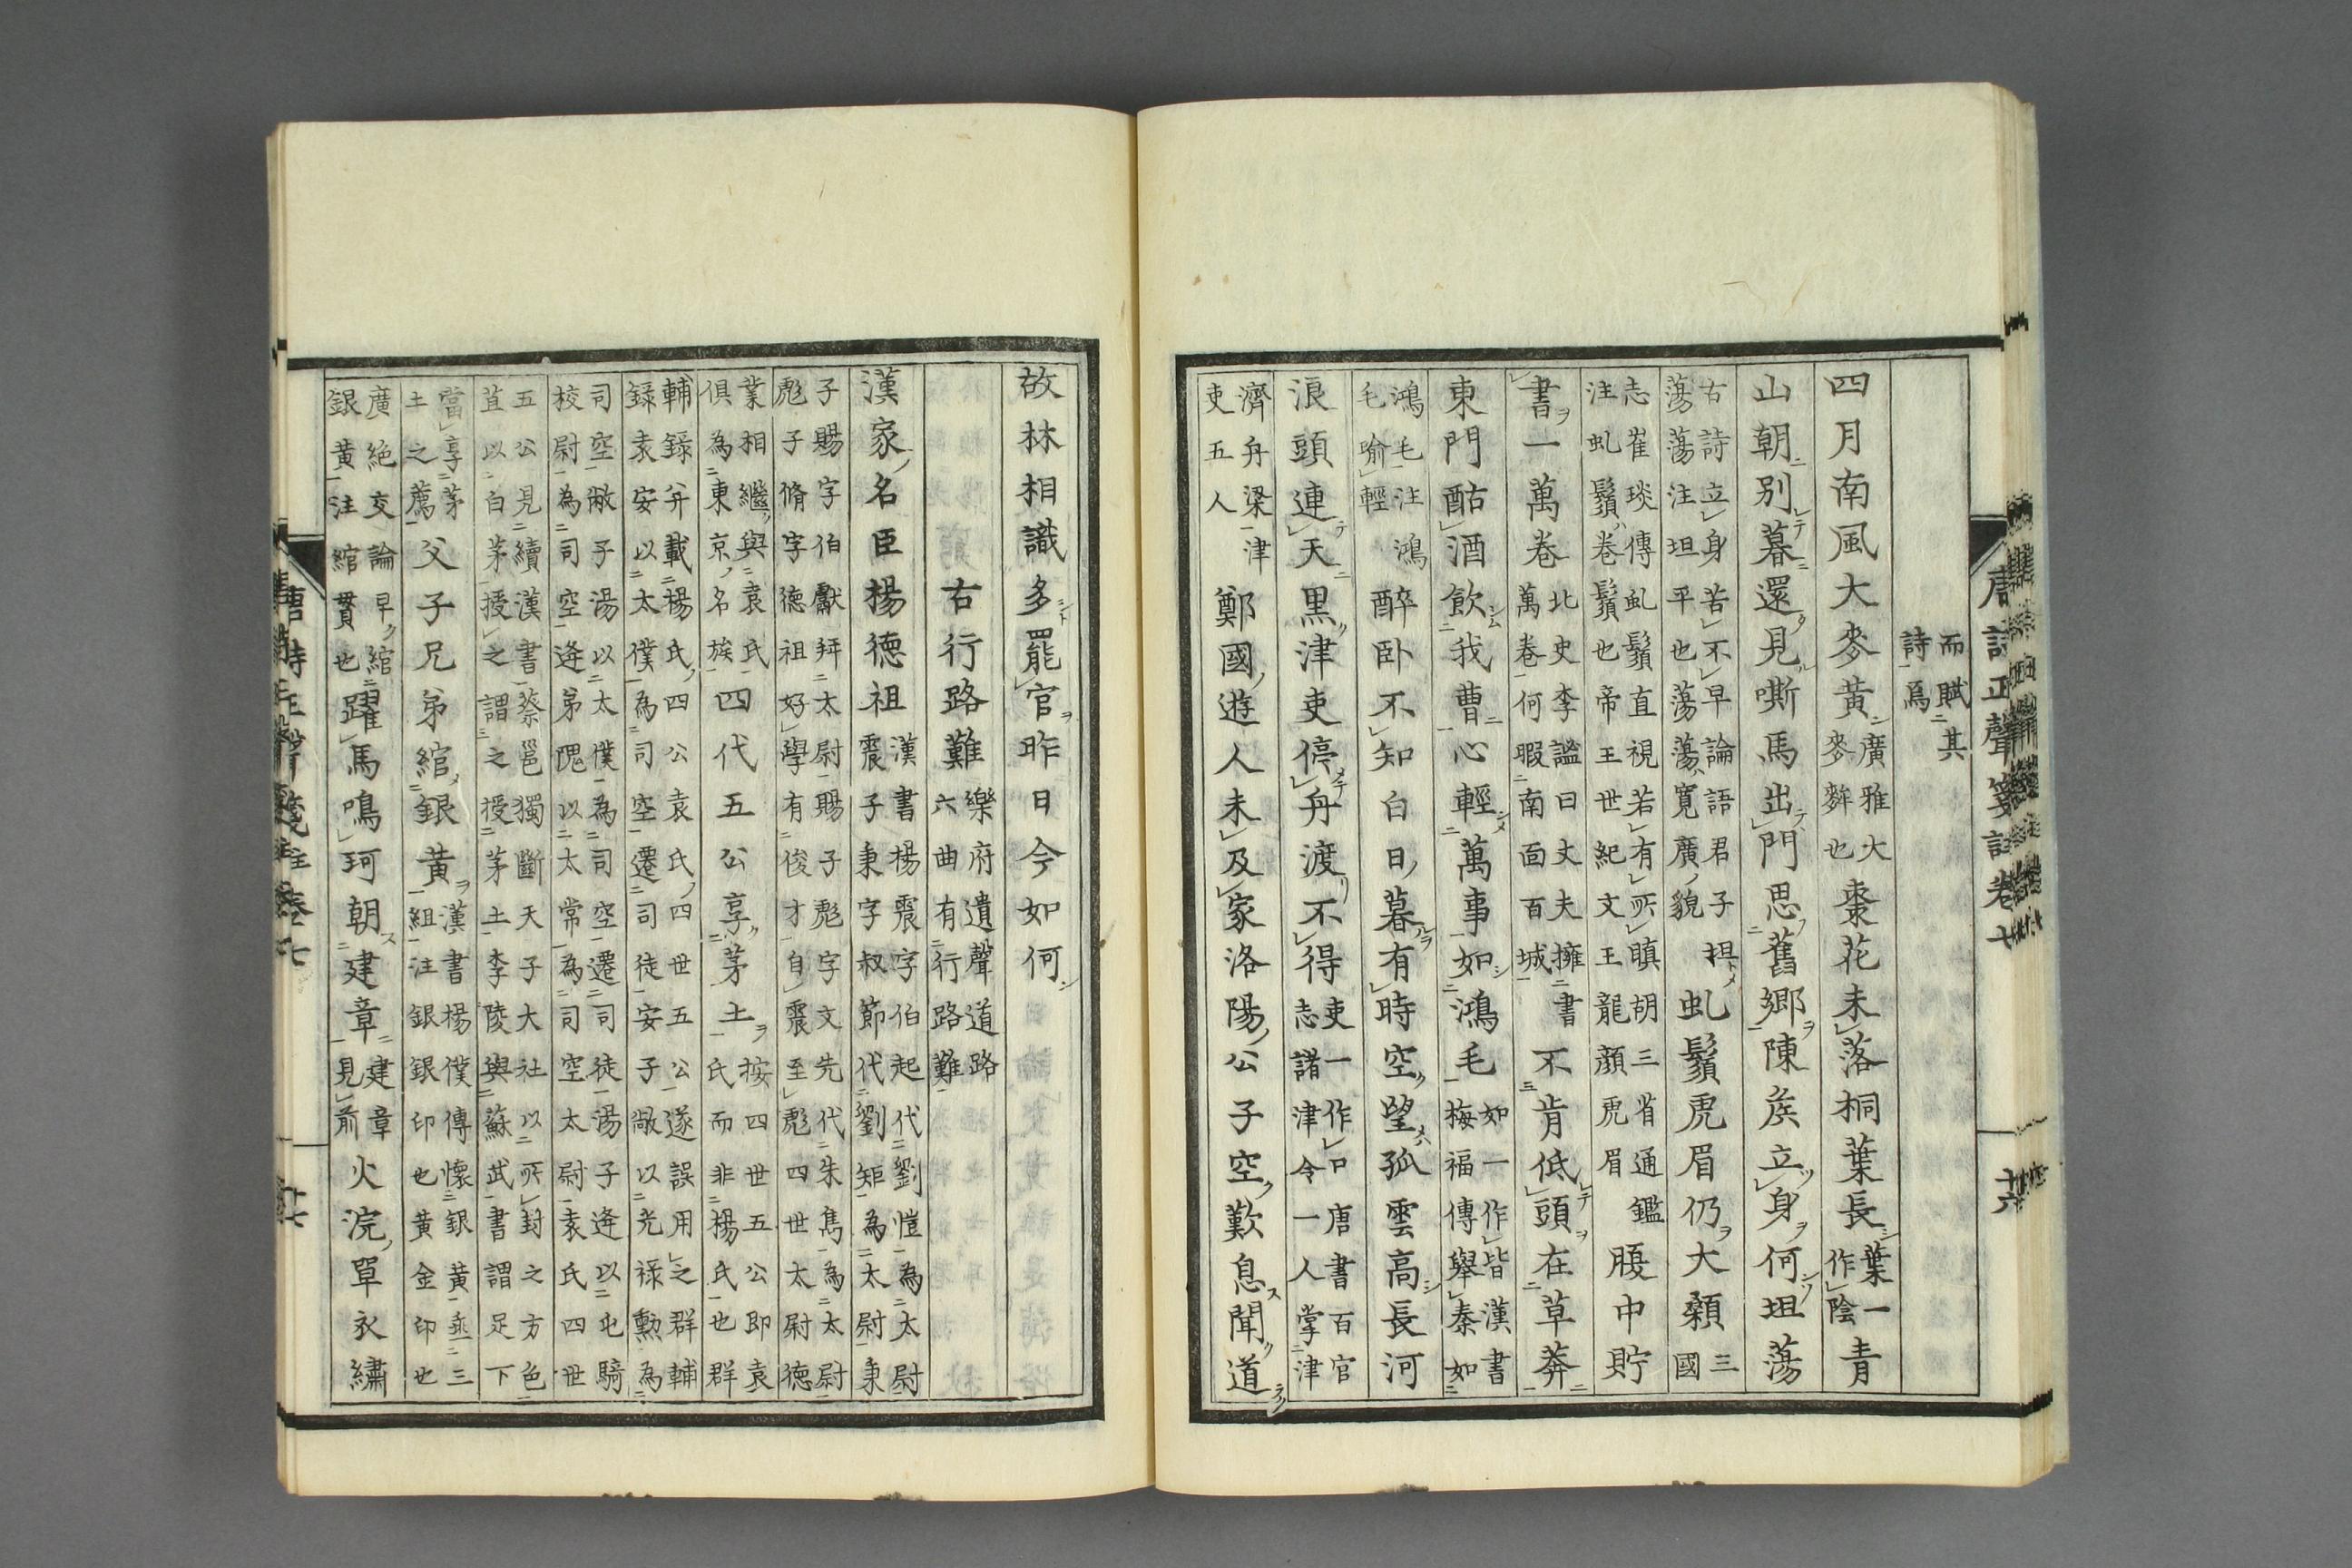 唐詩正聲箋註卷七
十六
而賦其
詩焉
四月南風大麥黃
廣雅大
麥䴰也
棗花未落桐葉長
葉一
作陰
青
山朝別暮還見嘶馬出門思舊鄉陳矦立身何坦蕩
古詩立身苦不早論語君子坦
蕩蕩注坦平也蕩蕩寬廣貌
虬鬚虎眉仍大顙
三
國
志崔琰傳虬鬚直視若有所瞋胡三省通鑑
注虬鬚卷鬚也帝王世紀文王龍顏虎眉
腹中貯
書一萬卷
北史李謐曰丈夫擁書
萬卷何暇南面百城
不肯低頭在草莽
東門酤酒飲我曹心輕萬事如鴻毛
如一作皆漢書
梅福傳舉秦如
鴻毛注鴻
毛喻輕
醉卧不知白日暮有時空望孤雲高長河
浪頭連天黑津吏停舟渡不得
吏一作口唐書百官
志諸津令一人掌津
濟舟梁津
吏五人
鄭國遊人未及家洛陽公子空歎息聞道
故林相識多罷官昨日今如何
右行路難
樂府遺聲道路
六曲有行路難
漢家名臣楊德祖
漢書楊震字伯起代劉愷為太尉
震子秉字叔節代劉矩為太尉秉
子賜字伯獻拜太尉賜子彪字文先代朱雋為太尉
彪子脩字德祖好學有俊才自震至彪四世太尉德
業相繼與袁氏
俱為東京名族
四代五公享茅土
按四世五公即袁
氏而非楊氏也群
輔錄并載楊氏四公袁氏四世五公遂誤用之群輔
錄袁安以太僕為司空遷司徒安子敞以光祿勳為
司空敞子湯以太僕為司空遷司徒湯子逄以屯騎
校尉為司空逄弟隗以太常為司空太尉袁氏四世
五公見續漢書蔡邕獨斷天子大社以所封之方色
苴以白茅授之謂之授茅土李陵與蘇武書謂足下
當享茅
土之薦
父子兄弟綰銀黃
漢書楊僕傳懷銀黃垂三
組注銀銀印也黃金印也
廣絕交論早綰
銀黃注綰貫也
躍馬鳴珂朝建章
建章
見前
火浣單衣繡
唐詩正聲箋註卷七
十七